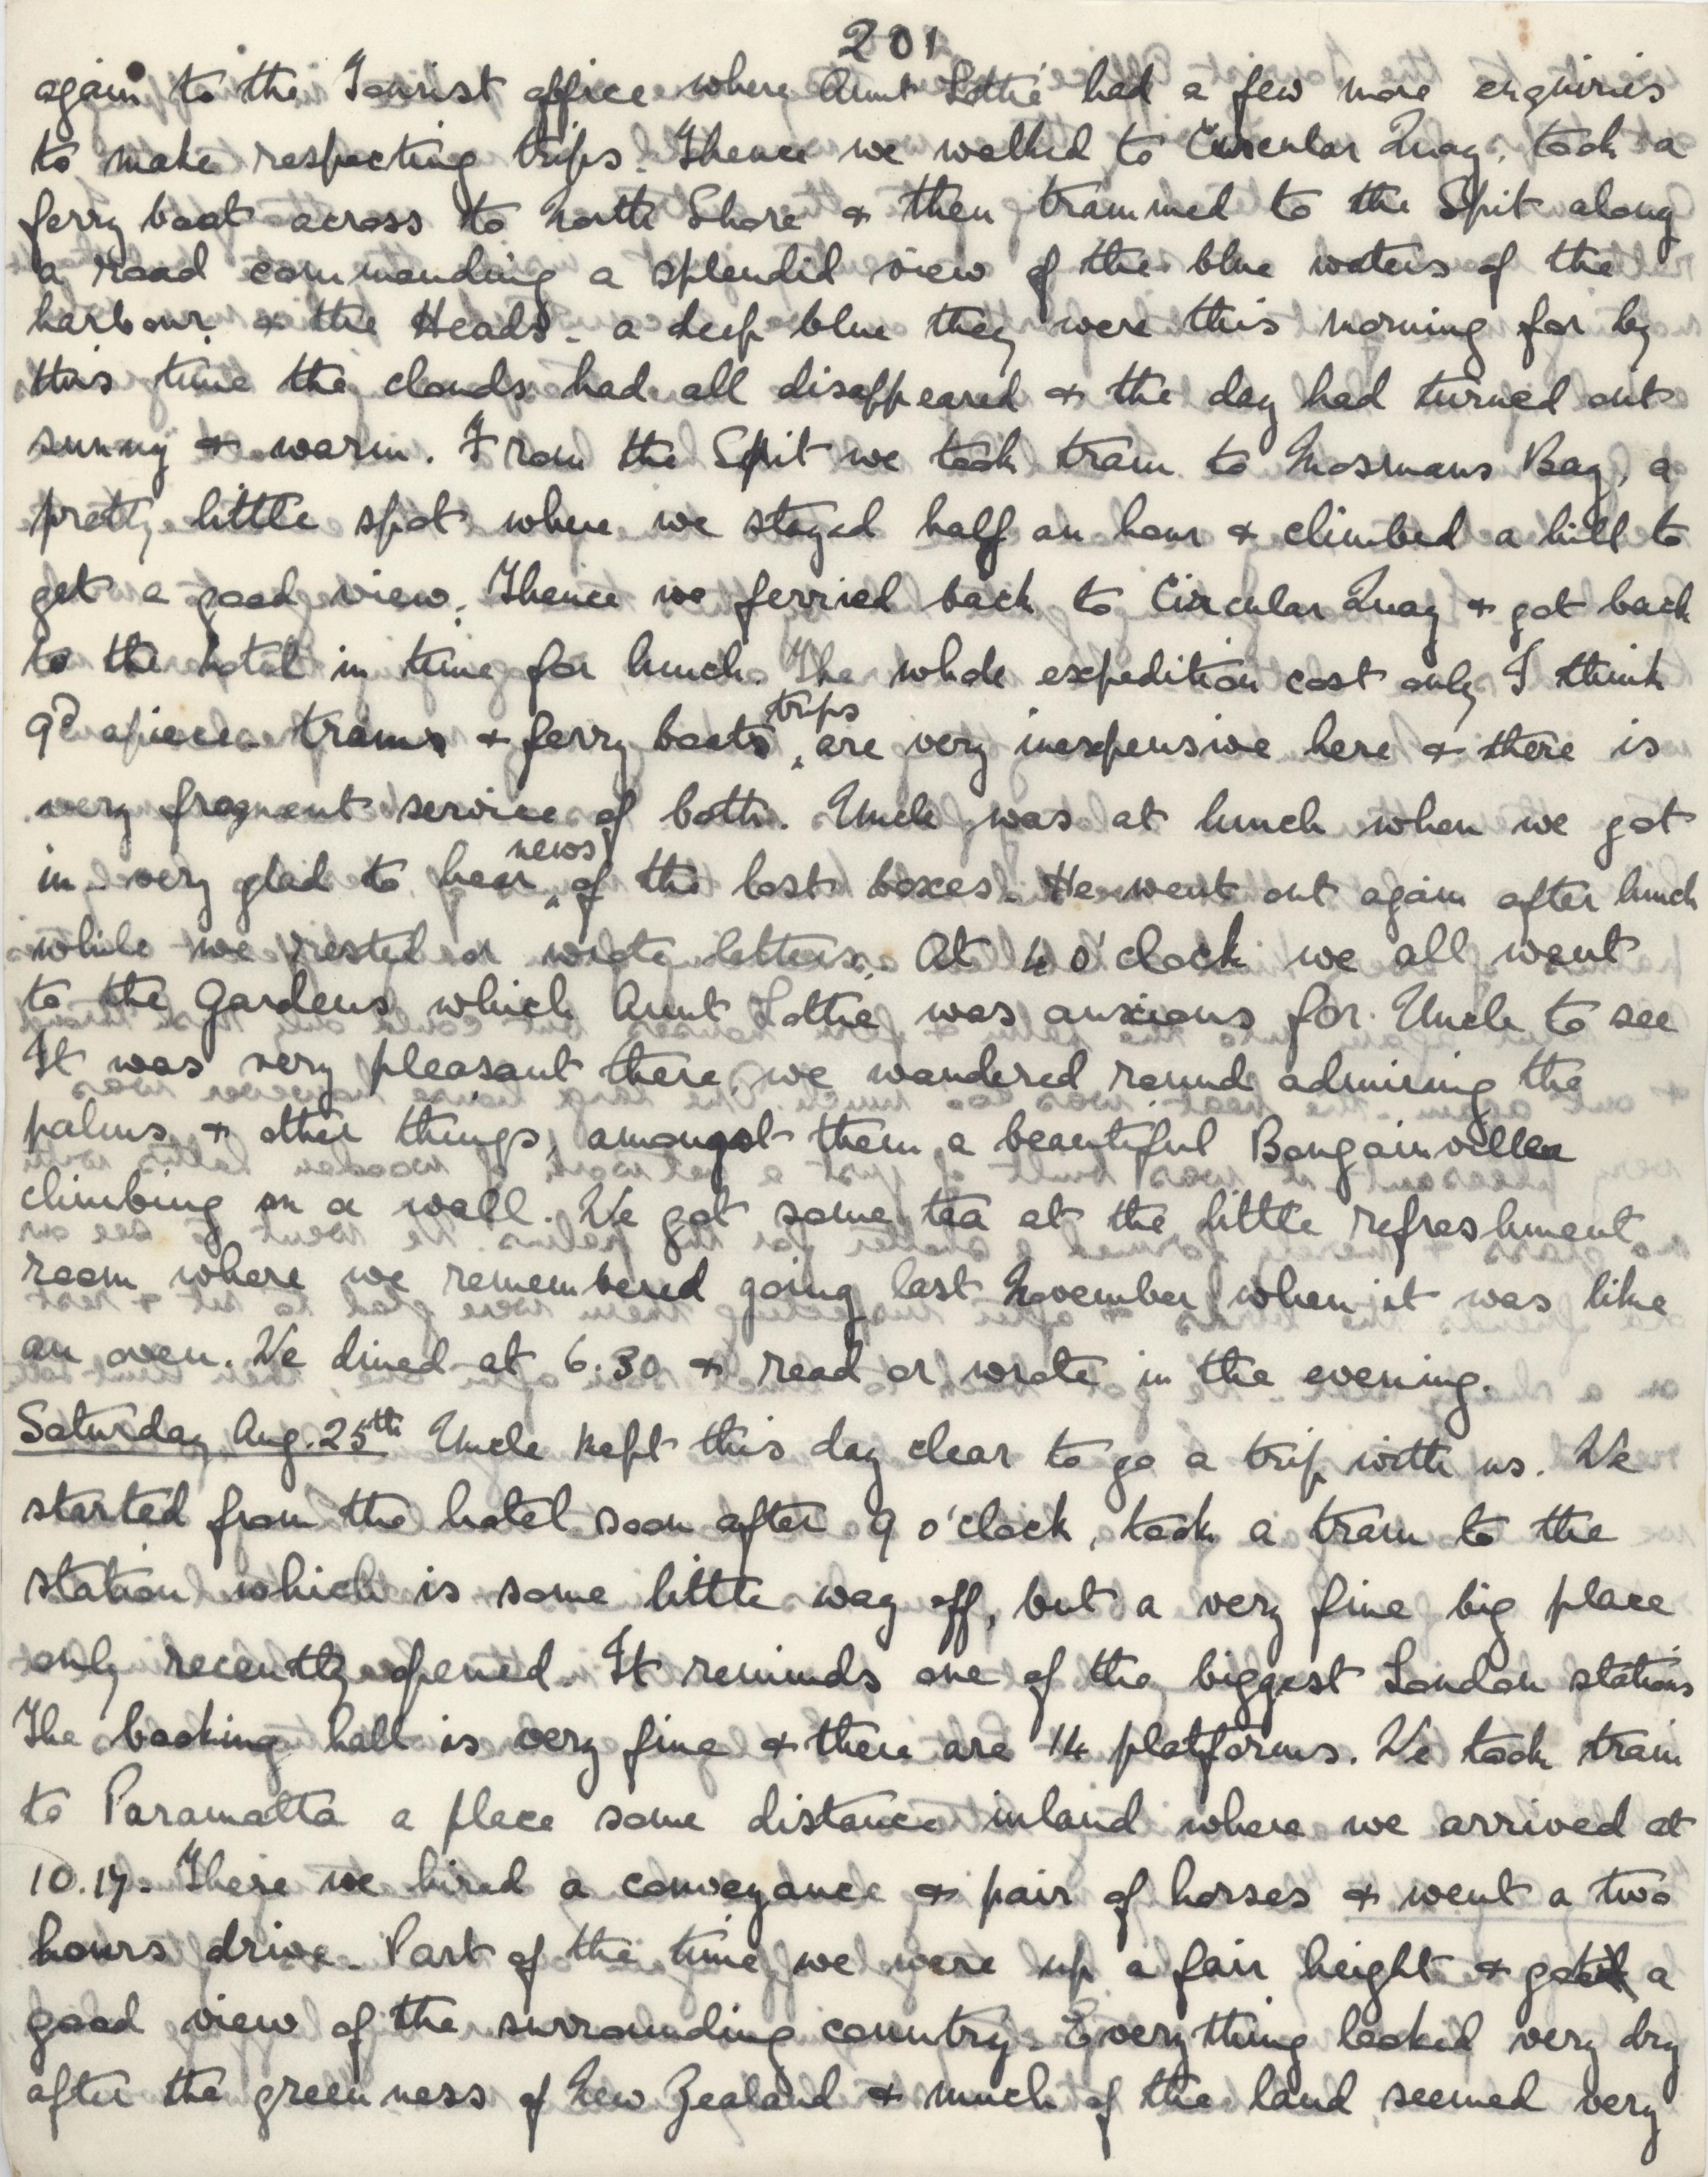 201
again to the Tourist office where Aunt Lottie had a few more enquiries
to make respecting trips. Thence we walked to Circular Quay, took a
ferry boat across to North Shore & then trammed to the Spit along
a road commanding a splendid view of the blue waters of the
harbour & the Heads - a deep blue they were this morning for by
this time the clouds had all disappeared & the day had turned out
sunny & warm. From the Spit we took tram to Mosmans Bay, a
pretty little spot where we stayed half an hour & climbed a hill to
get a good view. Thence we ferried back to Circular Quay & got back
to the hotel in time for lunch. The whole expedition cost only I think
9d apiece - trams & ferry boats trips are very inexpensive here & there is
very frequent service of both. Uncle was at lunch when we got
in - very glad to hear news of the lost boxes. He went out again after lunch
while we rested or wrote letters. At 4 o'clock we all went
to the Gardens which Aunt Lottie was anxious for Uncle to see
It was very pleasant there, we wandered round admiring the
palms & other things, amongst them a beautiful Bougainvillea
climbing on a wall. We got some tea at the little refreshment
room where we remembered going last November when it was like
an oven. We dined at 6.30 & read or wrote in the evening.
Saturday Aug. 25th Uncle kept this day clear to go a trip with us. We
started from the hotel soon after 9 o'clock, took a tram to the
station which is some little way off, but a very fine big place
only recently opened. It reminds one of the biggest London stations
The booking hall is very fine & there are 14 platforms. We took train
to Paramatta a place some distance inland where we arrived at
10.17. There we hired a conveyance & pair of horses & went a two
hours drive. Part of the time we were up a fair height & got a
good view of the surrounding country. Everything looked very dry
after the greenness of New Zealand & much of the land seemed very